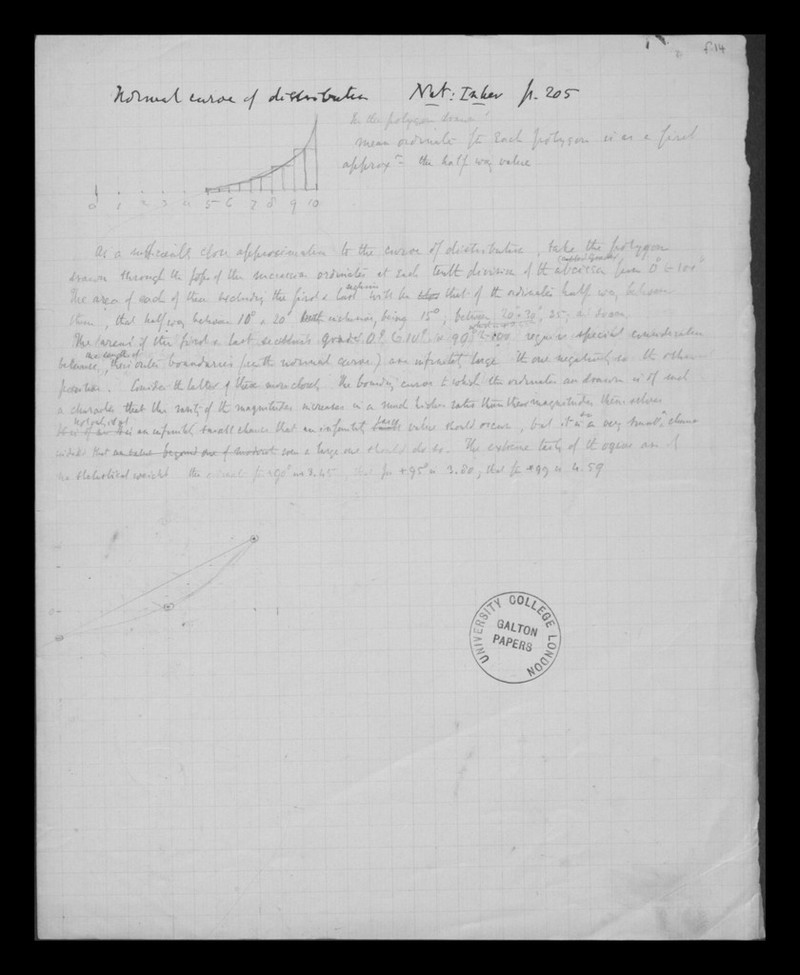 f.14
Normal curve of distribution Nat: Inher p. 205
In the polygon drawn
mean ordinate for each polygon is as a first
approxn the half way value
0 1 2 3 4 5 6 7 8 9 10
As a sufficiently close approximation to the curve of distribution, take the polygon
drawn through the tops of the successive ordinates at each tenth division of the abscissa from 0° to 100°
The area of each of these excluding the first & last will be that of the ordinates half way between
them, that half way between 10° & 20° inclusive, being 15°, between 20° & 30°, 25, & so on.
The areas of the first & last sections grades 0° to 10° & 90° to 100 require special consideration
because, the length of their outer boundaries (in the normal curve) are infinitely large the one negatively so the other
positive. Consider the latter of these more closely. The bounding curve to which the ordinates are drawn is of such
a character that the rarity of the magnitudes increases in a much higher ratio than these magnitudes themselves
an infinitely small chance that an infinitely large value should occur, but it is a very small chance
indeed that even a large one should do so. The extreme tails of the ogive are of
no statistical weight for +90° is 2.45, that for +95° is 3.80, that for +99 is 4.59
0
UNIVERSITY COLLEGE LONDON
GALTON
PAPERS